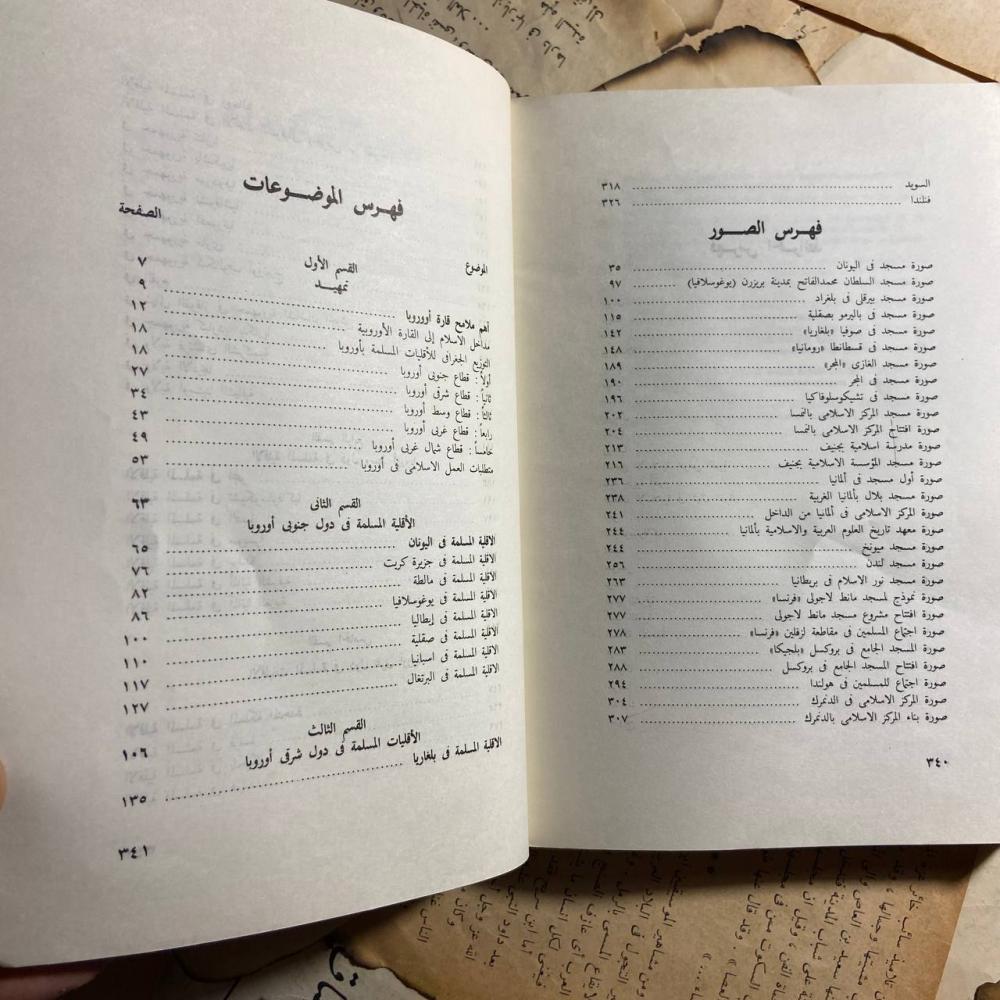 السويد ........ ٣١٨
فنلندا ........ ٣٢٦
فهرس الصور
صورة مسجد فى اليونان ........ ٣٥
صورة مسجد السلطان محمدالفاتح بمدينة بريزرن (يوغوسلافيا) ........ ٩٧
صورة مسجد بيرقلى فى بلغراد ........ ١٠٠
صورة مسجد فى باليرمو بصقلية ........ ١١٥
صورة مسجد فى صوفيا «بلغاريا» ........ ١٤٢
صورة مسجد فى قسطانطا «رومانيا» ........ ١٤٨
صورة مسجد الغازى «المجر» ........ ١٨٩
صورة مسجد فى المجر ........ ١٩٠
صورة مسجد فى تشيكوسلوفاكيا ........ ١٩٦
صورة مسجد المركز الاسلامى بالنمسا ........ ٢٠٢
صورة افتتاح المركز الاسلامى بالنمسا ........ ٢٠٤
صورة مدرسة اسلامية بجنيف ........ ٢١٣
صورة مسجد المؤسسة الاسلامية بجنيف ........ ٢١٦
صورة أول مسجد فى ألمانيا ........ ٢٣٦
صورة مسجد بلال بألمانيا الغربية ........ ٢٣٨
صورة المركز الاسلامى فى ألمانيا من الداخل ........ ٢٤١
صورة معهد تاريخ العلوم العربية والاسلامية بألمانيا ........ ٢٤٤
صورة مسجد ميونخ ........ ٢٤٤
صورة مسجد لندن ........ ٢٥٦
صورة مسجد نور الاسلام فى بريطانيا ........ ٢٦٣
صورة نموذج لمسجد مانط لاجولى «فرنسا» ........ ٢٧٧
صورة افتتاح مشروع مسجد مانط لاجولى ........ ٢٧٧
صورة اجتماع المسلمين فى مقاطعة لزفلين «فرنسا» ........ ٢٧٨
صورة المسجد الجامع فى بروكسل «بلجيكا» ........ ٢٨٣
صورة افتتاح المسجد الجامع فى بروكسل ........ ٢٨٨
صورة اجتماع للمسلمين فى هولندا ........ ٢٩٤
صورة المركز الاسلامى فى الدنمرك ........ ٣٠٤
صورة بناء المركز الاسلامى بالدنمرك ........ ٣٠٧
٣٤٠
فهرس الموضوعات
الموضوع الصفحة
القسم الأول ٧
تمهيد ٩
أهم ملامح قارة أووروبا ........ ١٢
مداخل الاسلام إلى القارة الأوروبية ........ ١٨
التوزيع الجغرافى للأقليات المسلمة بأوروبا ........ ١٨
أولاً : قطاع جنوبى أوروبا ........ ٢٧
ثانياً : قطاع شرقى أوروبا ........ ٣٤
ثالثاً : قطاع وسط أوروبا ........ ٤٣
رابعاً : قطاع غربى أوروبا ........ ٤٩
خامساً : قطاع شمال غربى أوروبا ........ ٥٣
متطلبات العمل الاسلامى فى أوروبا
القسم الثانى ٦٣
الأقلية المسلمة فى دول جنوبى أوروبا
الاقلية المسلمة فى اليونان ........ ٦٥
الاقلية المسلمة فى جزيرة كريت ........ ٧٦
الاقلية المسلمة فى مالطة ........ ٨٢
الاقلية المسلمة فى يوغوسلافيا ........ ٨٦
الاقلية المسلمة فى إيطاليا ........ ١٠٠
الاقلية المسلمة فى صقلية ........ ١١٠
الاقلية المسلمة فى اسبانيا ........ ١١٧
الاقلية المسلمة فى البرتغال ........ ١٢٧
القسم الثالث
الأقليات المسلمة فى دول شرقى أوروبا ١٠٦
الاقلية المسلمة فى بلغاريا ........ ١٣٥
٣٤١